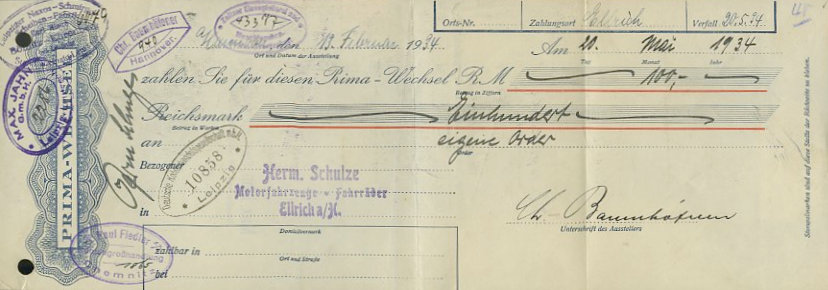 Orts-Nr.
Zahlungsort Ellrich
Verfall 20.5.34.
Hannover, den 13. Februar 1934
Ort und Datum der Ausstellung
Am 20. Mai 1934
Tag Monat Jahr
zahlen Sie für diesen Prima-Wechsel RM 100,-
Betrag in Ziffern
Reichsmark Einhundert
Betrag in Worten
an eigene Order
Bezogener
Herm. Schulze
Motorfahrzeuge u. Fahrräder
Ellrich a/H.
in
Domizilvermerk
zahlbar in
Ort und Straße
bei
Unterschrift des Ausstellers
PRIMA-WECHSEL
Chr. Baumhöfener
Hannover.
MAX JAHN
G.m.b.H.
Leipzig
10858
Leipzig
Paul Fiedler
Chemnitz
13377
Stempelmarken sind auf diese Stelle der Rückseite zu kleben.